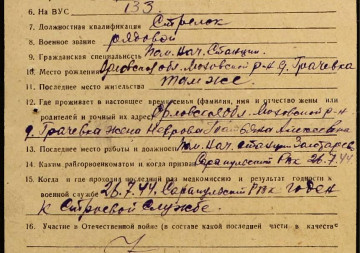 6. На ВУС 133
7. Должностная квалификация Стрелок
8. Военное звание рядовой
9. Гражданская специальность Пом. Нач. Станции.
10. Место рождения Орловск. обл. Моховской р-н д. Грачевка
11. Последнее место жительства там же
12. Где проживает в настоящее время семья (фамилия, имя и отчество жены или
родителей и точный их адрес) Орловск. обл. Моховской р-н
д. Грачевка жена
13. Последнее место работы и должность Пом. Нач. станции
14. Каким райгорвоенкоматом и когда призван Сарапульский РВК 26.7.44
15. Когда и где проходил раз медкомиссию и результат годности к
военной службе 26.7.44. Сарапульский РВК годен
к строевой службе.
16. Участие в Отечественной войне (в составе какой последней части в качестве